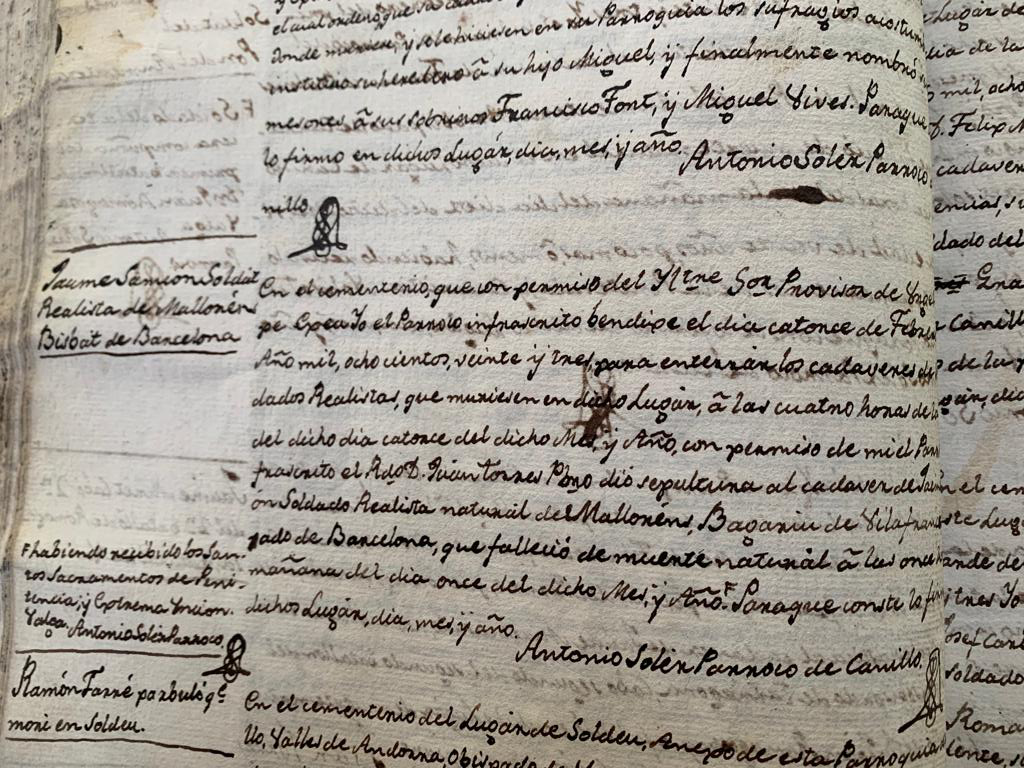 donde muriese, y se le hiciesen en su Parroquia los sufragios acostum
instituio su heredero â su hijo Miguel, ÿ finalmente nombró
mesores â sus sobrinos Francisco Font, ÿ Miguel Vives. Paraque
lo firmo en dichos Lugár, dia, mes, ÿ año. Antonio Solér Parroco
nillo.
Jaume Samson Soldat
Realista de Malloréns
Bisbat de Barcelona
En el cementerio, que con permiso del Yltre Sor Provisor de Urgel
Yo el Parroco infrascrito bendipe el dia catorce de Febre
Año mil, ocho cientos, veinte ÿ tres, para enterrár los cadaveres de
dados Realistas, que muriesen en dicho Lugár, â las cuatro horas de la
del dicho dia catorce del dicho Mes, ÿ Año, con permiso de mi el Parr
frascrito el Rdo D. Juan Torres Pbro dió sepultura al cadaver de Jaum
on Soldado Realista natural de Malloréns, Bagariu de Vilafran
pado de Barcelona, que falleció de muerte naturál â las once
mañana del dia once del dicho Mes, ÿ Año. F Paraque conste lo fir
dichos Lugár, dia, mes, ÿ año.
Antonio Solér Parroco de Canillo.
F habiendo recibido los San-
tos Sacramentos de Peni-
tencia, ÿ Eptrema Uncion.
Valga Antonio Solér Parroco
Ramón Farré parbuló qe
morí en Soldeu.
En el cementerio del Lugár de Soldeu, Anepo de esta Parroquia
llo, Valles de Andorra, Obispado de